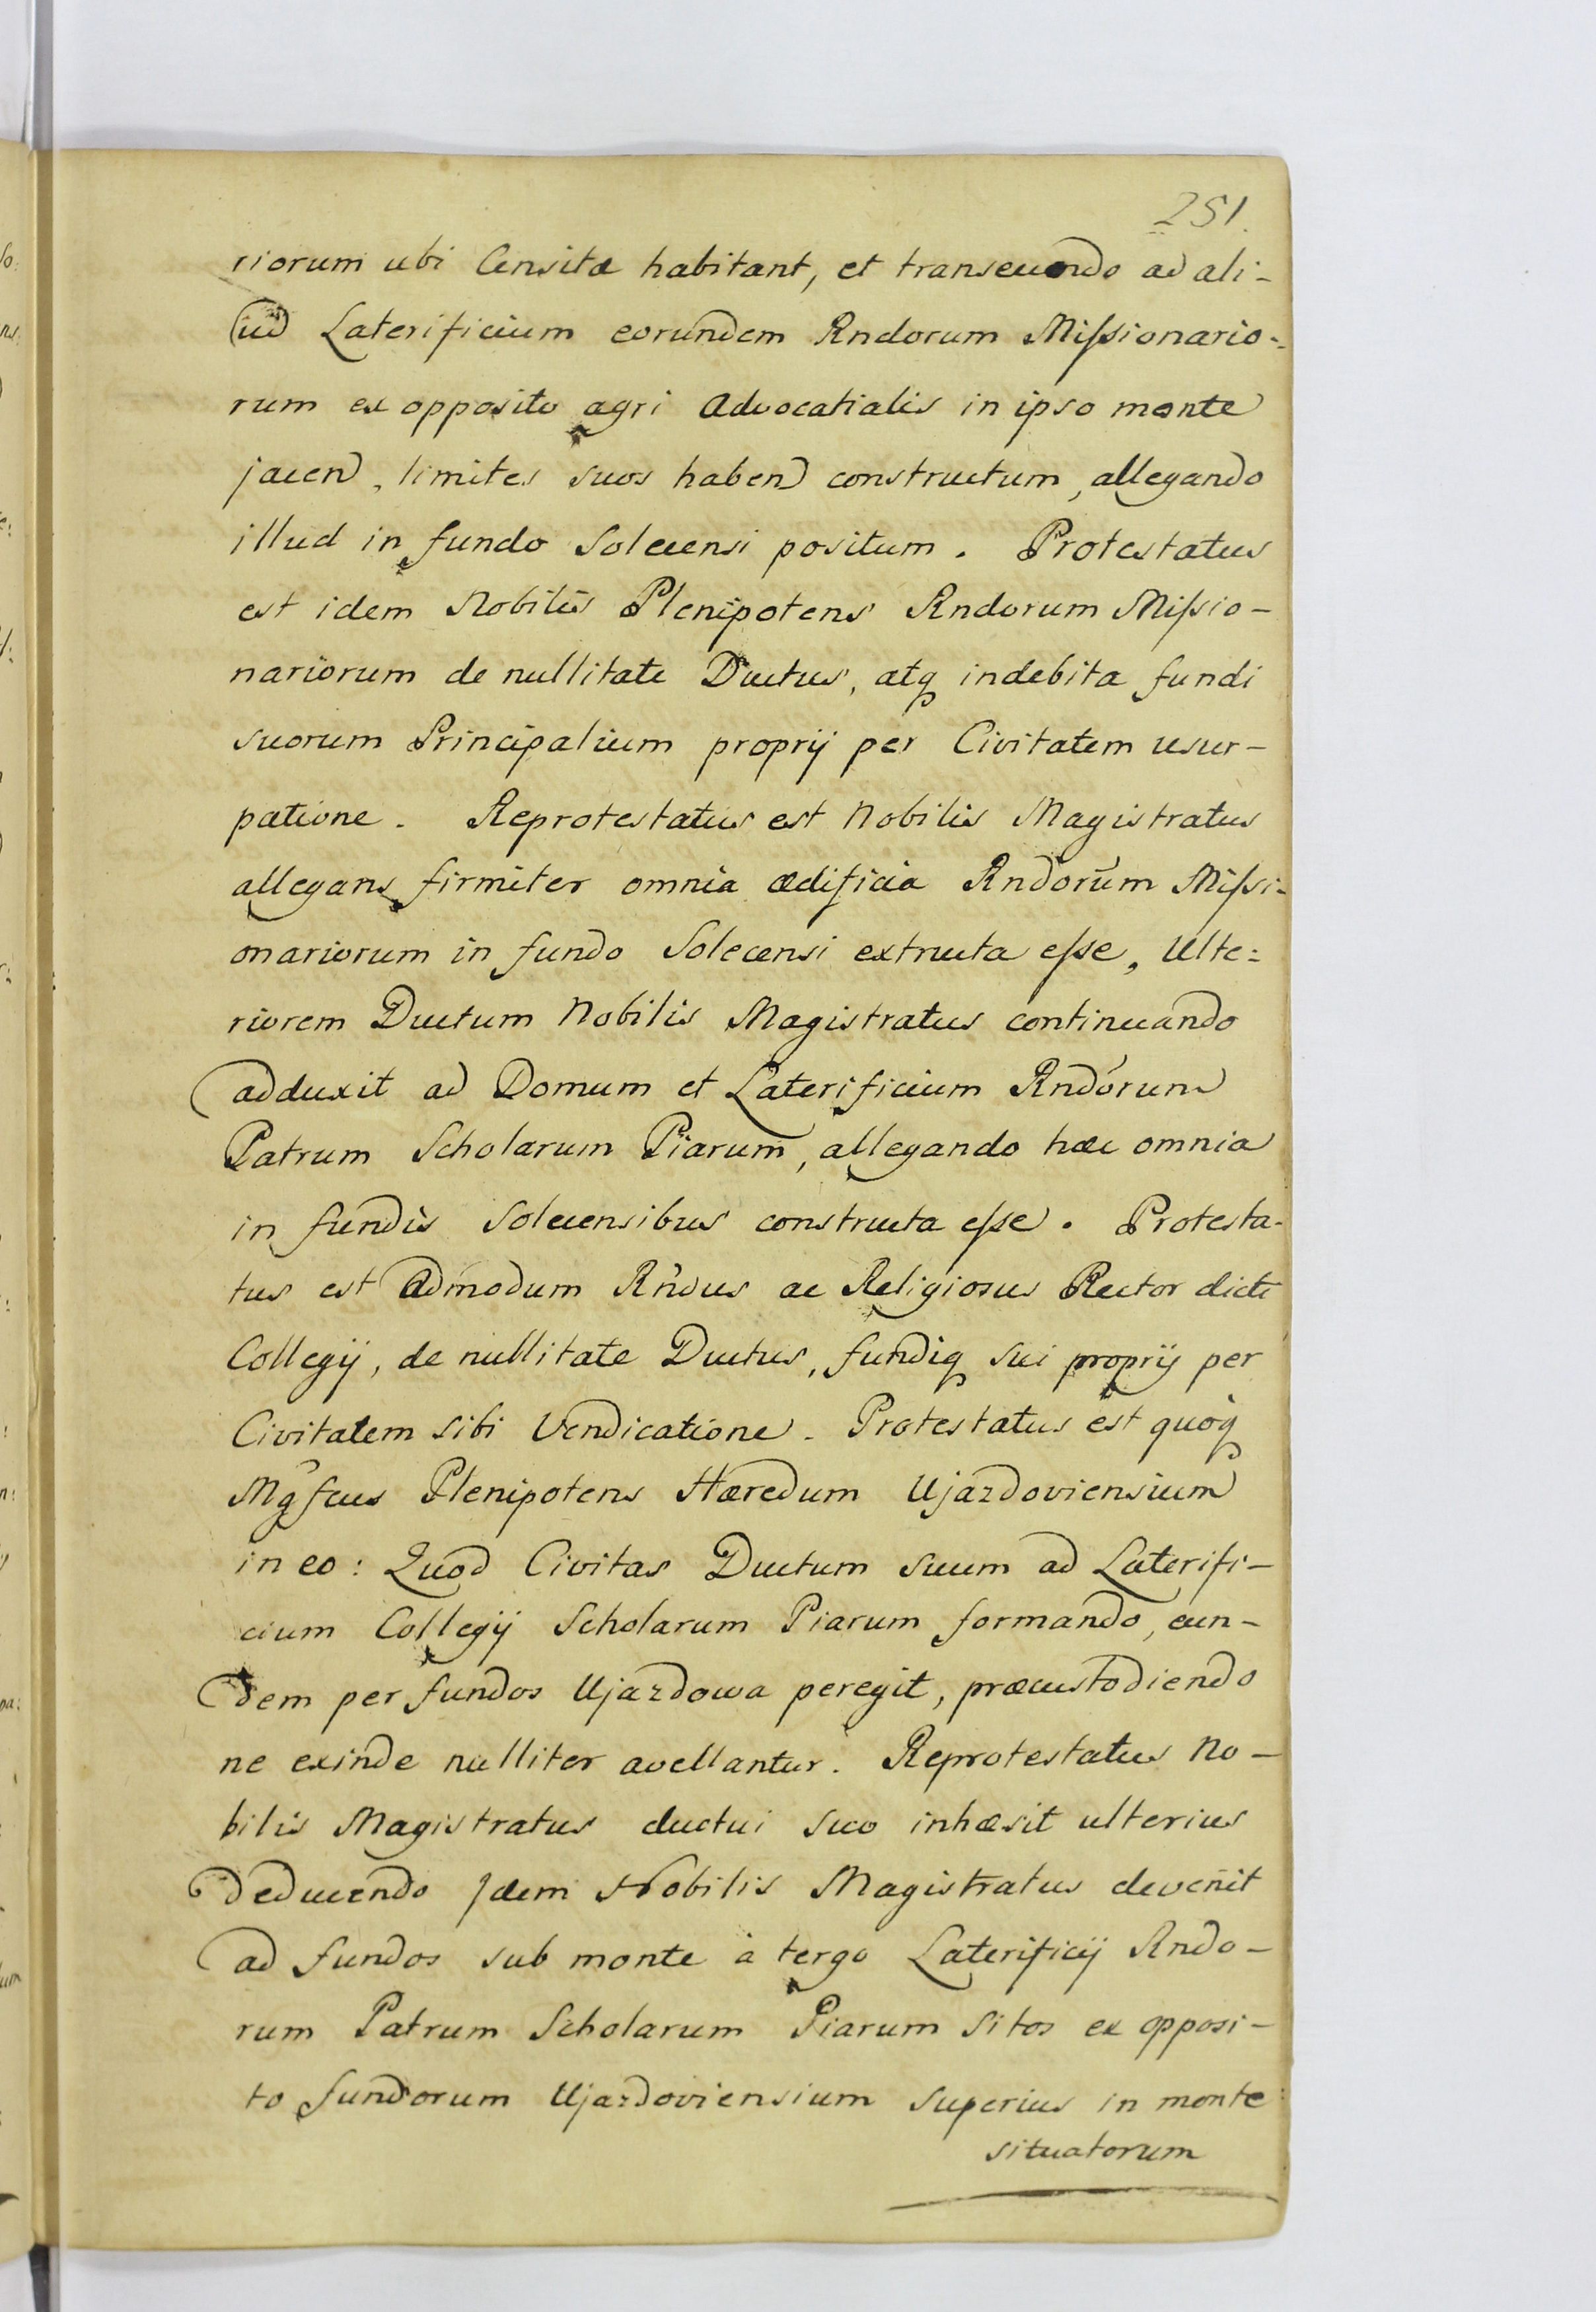 251.
riorum ubi Censitæ habitant, et transeundo ad ali-
ud Laterificium eorundem Rndorum Miſsionario-
rum ex opposito agri Advocatialis in ipso monte
jacen, limites suos haben constructum, allegando
illud in fundo Solecensi positum. Protestatus
est idem Nobilis Plenipotens Rndorum Miſsio-
nariorum de nullitate Ductus, atq indebita fundi
suorum Principalium proprij per Civitatem usur-
patione. Reprotestatus est Nobilis Magistratus
allegans firmiter omnia ædificia Rndorum Miſsi-
onariorum in fundo Solecensi extructa eſse, Ulte-
riorem Ductum Nobilis Magistratus continuando
adduxit ad Domum et Laterificium Rndorum
Patrum Scholarum Piarum, allegando hæc omnia
in fundis Solecensibus constructa eſse. Protesta-
tus est Admodum Rndus ac Religiosus Rector dicti
Collegij, de nullitate Ductus, fundiq sui proprij per
Civitatem sibi Vendicatione. Protestatus est quoq
Mgfcus Plenipotens Hæredum Ujazdoviensium
in eo: Quod Civitas Ductum suum ad Laterifi-
cium Collegij Scholarum Piarum formando, eun-
dem per fundos Ujazdowa peregit, præcustodiendo
ne exinde nulliter avellantur. Reprotestatus No-
bilis Magistratus ductui suo inhæsit ulterius
Deducendo Idem Nobilis Magistratus devenit
ad fundos sub monte à tergo Laterificij Rndo-
rum Patrum Scholarum Piarum sitos ex opposi-
to fundorum Ujazdoviensium superius in monte
situatorum